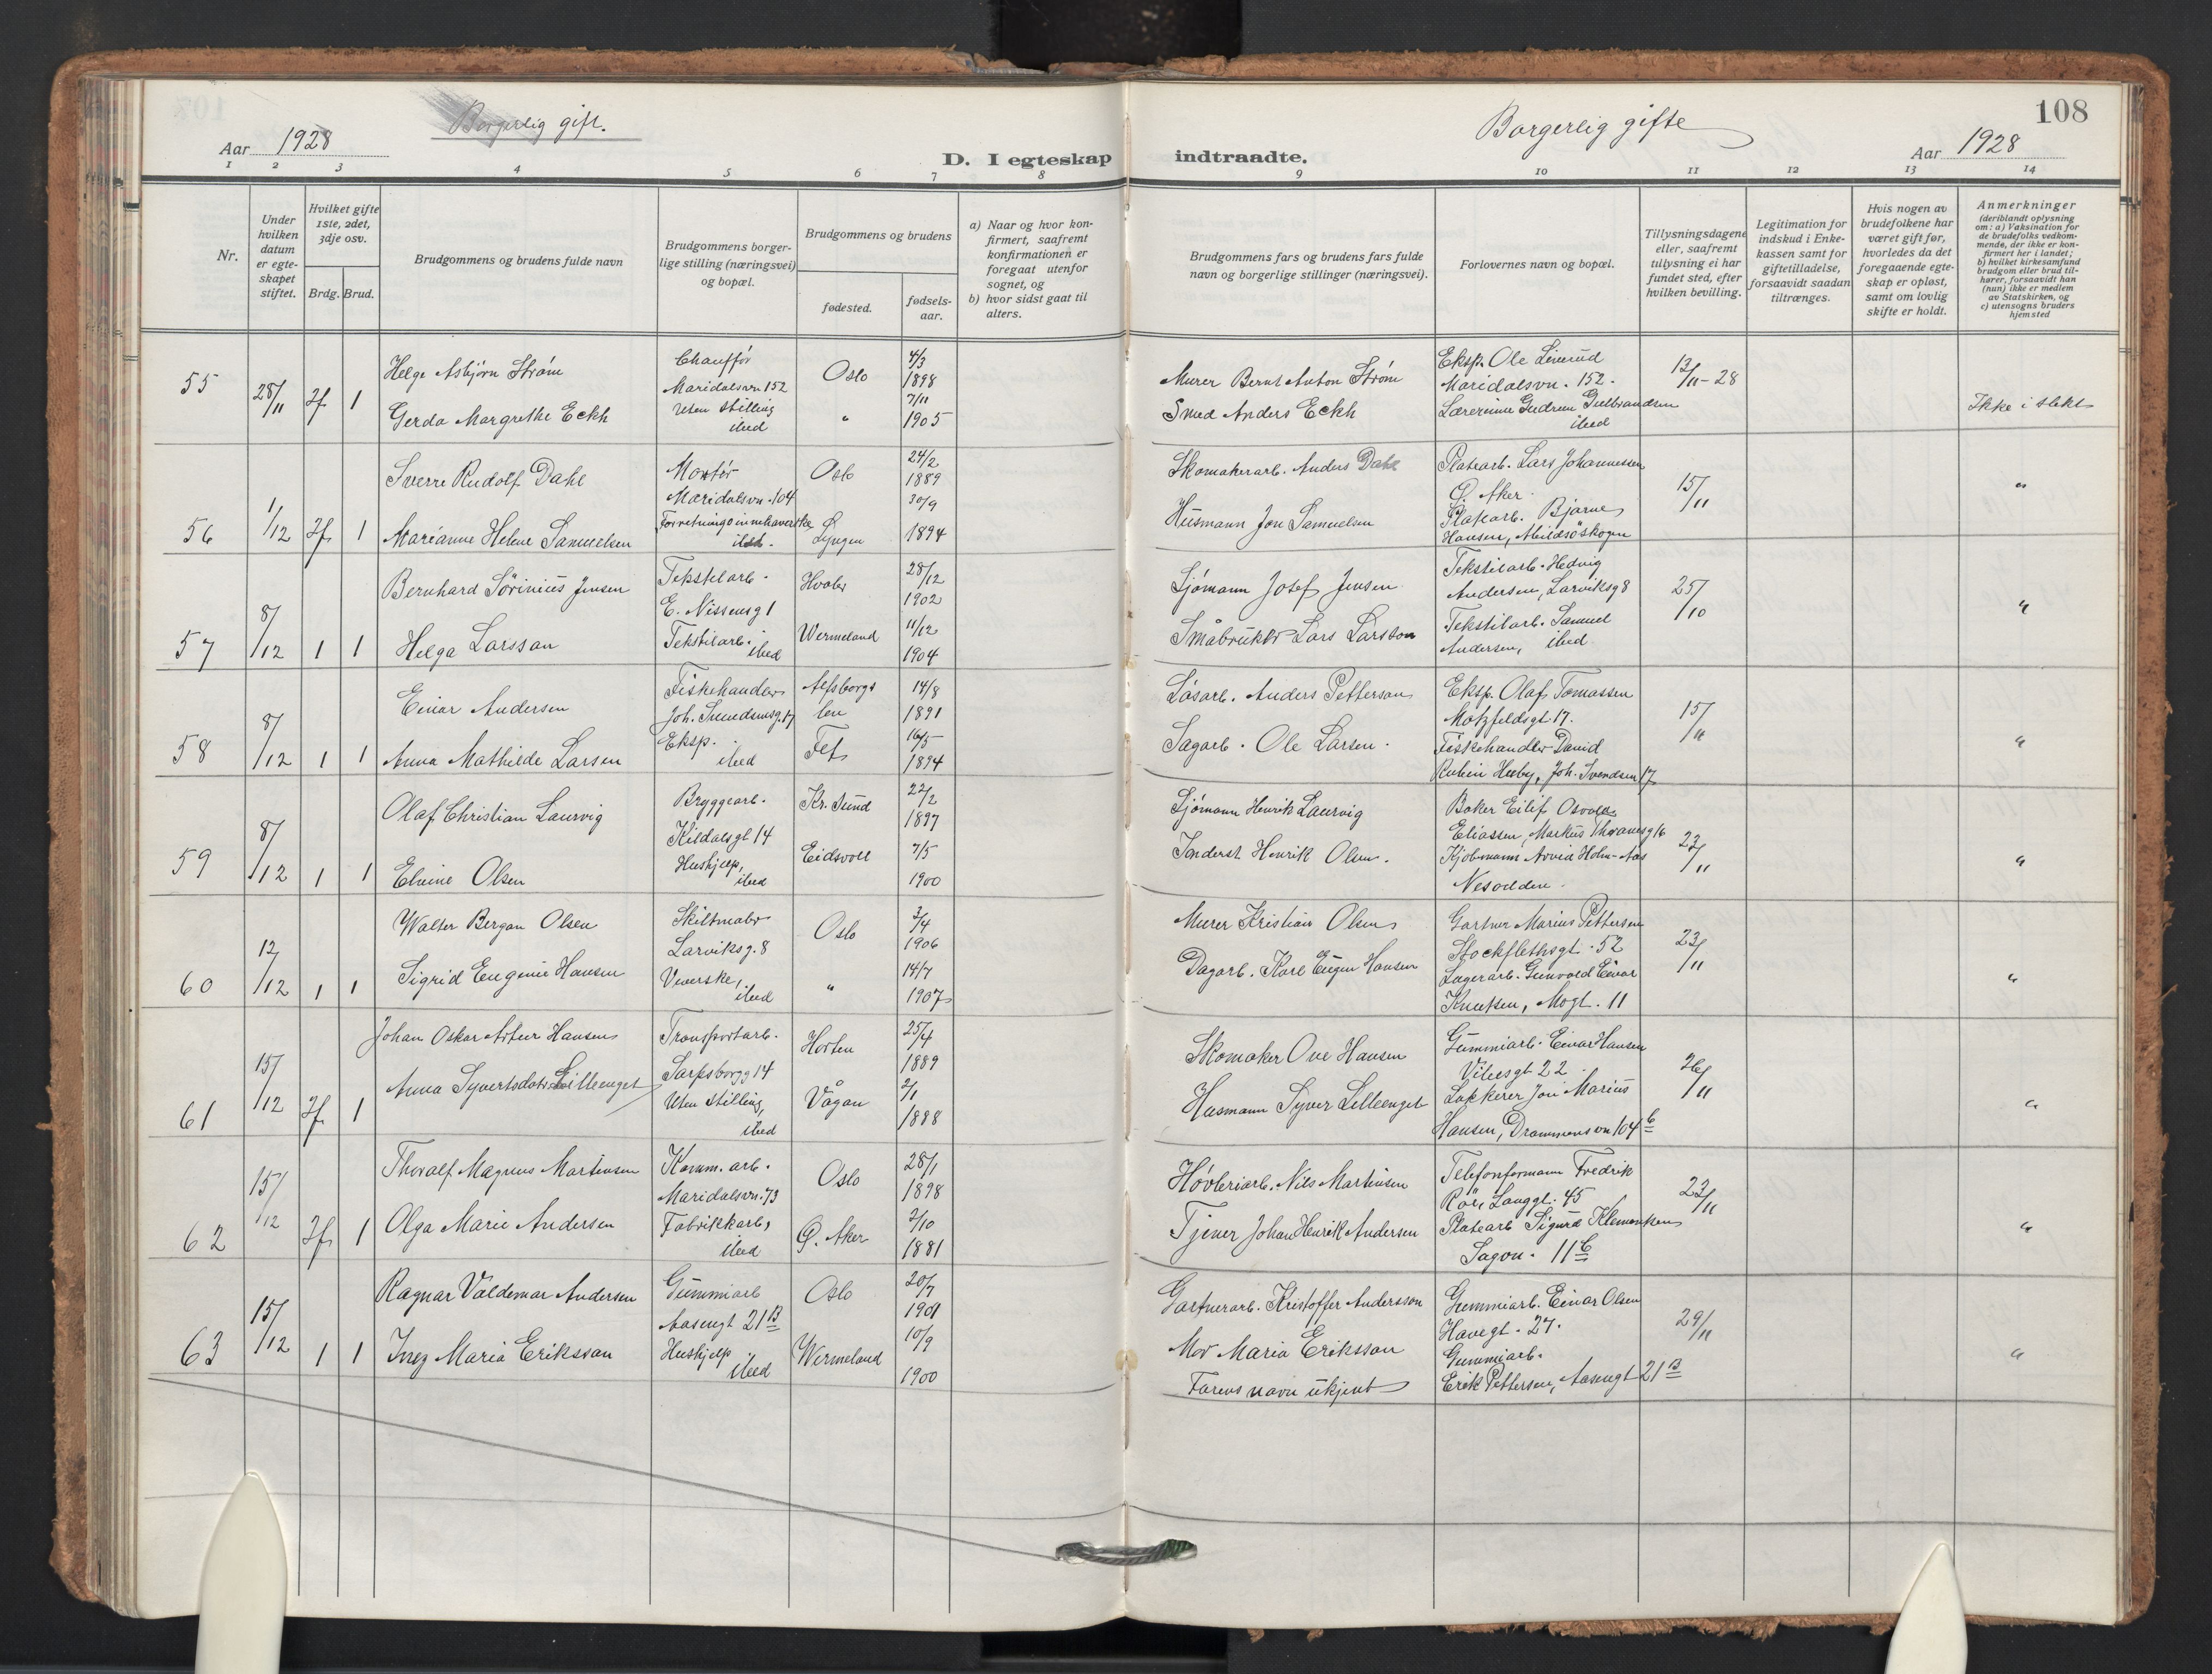 Aar 1928
Borgerlig gift.
D. I egteskap
1 2 3 4 5 6 7 8
Nr.
Under hvilken datum er egteskapet stiftet.
Hvilket gifte 1ste, 2det, 3dje osv.
Brdg. Brud.
Brudgommens og brudens fulde navn
Brudgommens borgerlige stilling (næringsvei) og bopæl.
Brudgommens og brudens
fødested.
fødselsaar.
a) Naar og hvor konfirmert, saafremt konfirmationen er foregaat utenfor sognet, og
b) hvor sidst gaat til alters.
55 28/11 Jf 1
Helge Asbjørn Strøm
Chauffør
Maridalsvn 152
Oslo
4/3 1898
Gerda Margrethe Eckh
Uten stilling
ibed
"
7/11 1905
56 1/12 Jf 1
Sverre Rudolf Dahl
Montør
Maridalsvn. 104
Oslo
24/2 1889
Marianne Helene Samuelsen
Forretningsinnehaverske
ibd.
Lyngen
30/9 1894
57 8/12 1 1
Bernhard Sørinius Jensen
Tekstilarb.
E. Nissensg 1
Hvaler
28/12 1902
Helga Larsson
Tekstilarb.
ibed
Wermeland
11/12 1904
58 8/12 1 1
Einar Andersen
Fiskehandler
Joh. Svendsensg. 17
Alfsborgs len
14/8 1891
Anna Mathilde Larsen
Eksp.
ibed
Fet
16/5 1894
59 8/12 1 1
Olaf Christian Laurvig
Bryggearb.
Kildalsgt 14
Kr. Sund
22/2 1897
Elvine Olsen
Hushjelp,
ibed
Eidsvoll
7/5 1900
60 12/12 1 1
Walter Bergan Olsen
Skiltmaler
Larviksg. 8
Oslo
3/4 1906
Sigrid Eugenie Hansen
Veverske,
ibed
"
14/7 1907
61 15/12 Jf 1
Johan Oskar Artur Hansen
Transportarb.
Sarpsborgg 14
Horten
25/4 1889
Anna Syvertsdatt. Lilleenget
Uten stilling,
ibed
Vågan
2/1 1888
62 15/12 Jf 1
Thoralf Magnus Martinsen
Komm. arb.
Maridalsvn. 73
Oslo
28/1 1898
Olga Marie Andersen
Fabrikkarb,
ibed
Ø. Aker
2/10 1881
63 15/12 1 1
Ragnar Valdemar Andersen
Gummiarb
Aasengt 21 B
Oslo
20/7 1901
Inez Maria Eriksson
Hushjelp
ibed
Wermeland
10/9 1900
108
Borgerlig gifte
indtraadte.
Aar 1928
9 10 11 12 13 14
Brudgommens fars og brudens fars fulde navn og borgerlige stillinger (næringsvei).
Forlovernes navn og bopæl.
Tillysningsdagene eller, saafremt tillysning ei har fundet sted, efter hvilken bevilling.
Legitimation for indskud i Enkekassen samt for giftetilladelse, forsaavidt saadan tiltrænges.
Hvis nogen av brudefolkene har været gift før, hvorledes da det foregaaende egteskap er opløst, samt om lovlig skifte er holdt.
Anmerkninger
(deriblandt oplysning om: a) Vaksination for de brudefolks vedkommende, der ikke er konfirmert her i landet;
b) hvilket kirkesamfund brudgom eller brud tilhører, forsaavidt han (hun) ikke er medlem av Statskirken, og
c) utensogns bruders hjemsted
Murer Bernt Anton Strøm
Smed Anders Eckh
Eksp. Ole Linerud
Maridalsvn. 152.
Lærerinne Gudrun Gulbrandsen
ibed
13/11-28
Ikke i slekt
Skomakerarb. Anders Dahl
Husmann Jon Samuelsen
Platearb. Lars Johannessen
Ø. Aker.
Platearb. Bjarne
Hansen, Abildsöskogen
15/11
"
Sjømann Josef Jensen
Småbruker Lars Larsson
Tekstilarb. Hedvig
Andersen, Larviksg 8
Tekstilarb. Samuel
Andersen, ibed.
25/10
"
Løsarb. Anders Petterson
Sagarb. Ole Larsen.
Eksp. Olaf Tomassen
Motzfeldsgt. 17.
Fiskehandler David
Rubin Heeby, Joh. Svendsen 17
15/11
"
Sjømann Henrik Laurvig
Inderst Henrik Olsen.
Baker Eilif Osvald
Eliassen, Markus Thranesg 16
Kjøbmann Arvid Holm-Aas
Nesodden.
23/11
"
Murer Kristian Olsen
Dagarb. Karl Eugen Hansen
Gartner Marius Pettersen
Stockflethsgt. 52
Lagerarb. Gunvald Einar
Knutsen, Mogt. 11
23/11
"
Skomaker Ove Hansen
Husmann Syver Lilleenget
Gummiarb. Einar Hansen
Vibesgt 22
Lakkerer Jon Marius
Hansen, Drammensvn 104 b
26/11
"
Høvleriarb. Nils Martinsen
Tjener Johan Henrik Andersen
Telefonformann Fredrik
Langgt. 45
Platearb Sigurd Klementsen
Sagvn. 11 b
23/11
"
Gartnerarb. Kristoffer Andersson
Mor Maria Eriksson
Farens navn ukjent
Gummiarb. Einar Olsen
Havegt. 27.
Gummiarb.
Erik Pettersen, Aasengt 21 B
29/11
"